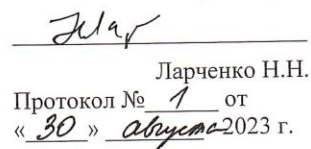 Ларченко Н.Н.
Протокол № 1 от
« 30 » августа 2023 г.